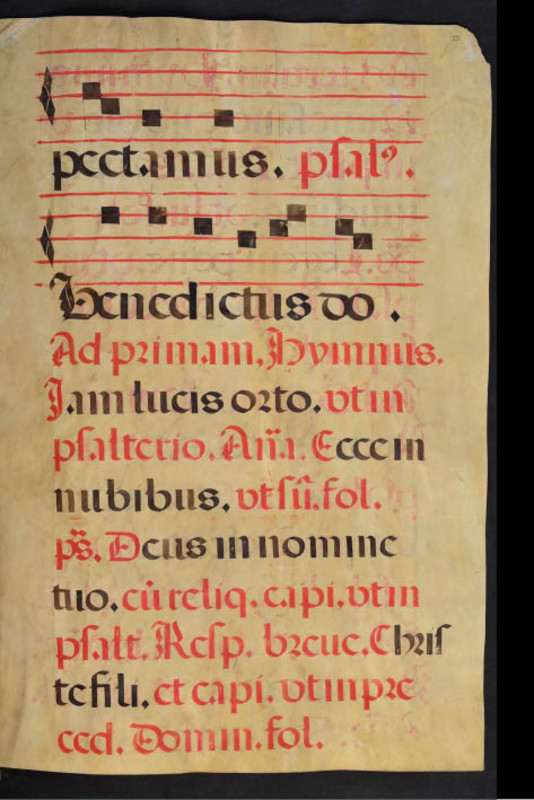 pectamus. psalꝰ.
Benedictus do.
Ad primam, Hymnus.
Jam lucis orto. vt in
psalterio. Aña. Ecce in
nubibus. vt sũ. fol.
ps̃. Deus in nomine
tuo. cũ reliq. capi. vt in
psalt. Resp. breue. Chris
te fili. et capi. vt in pre
ced. Domin. fol.